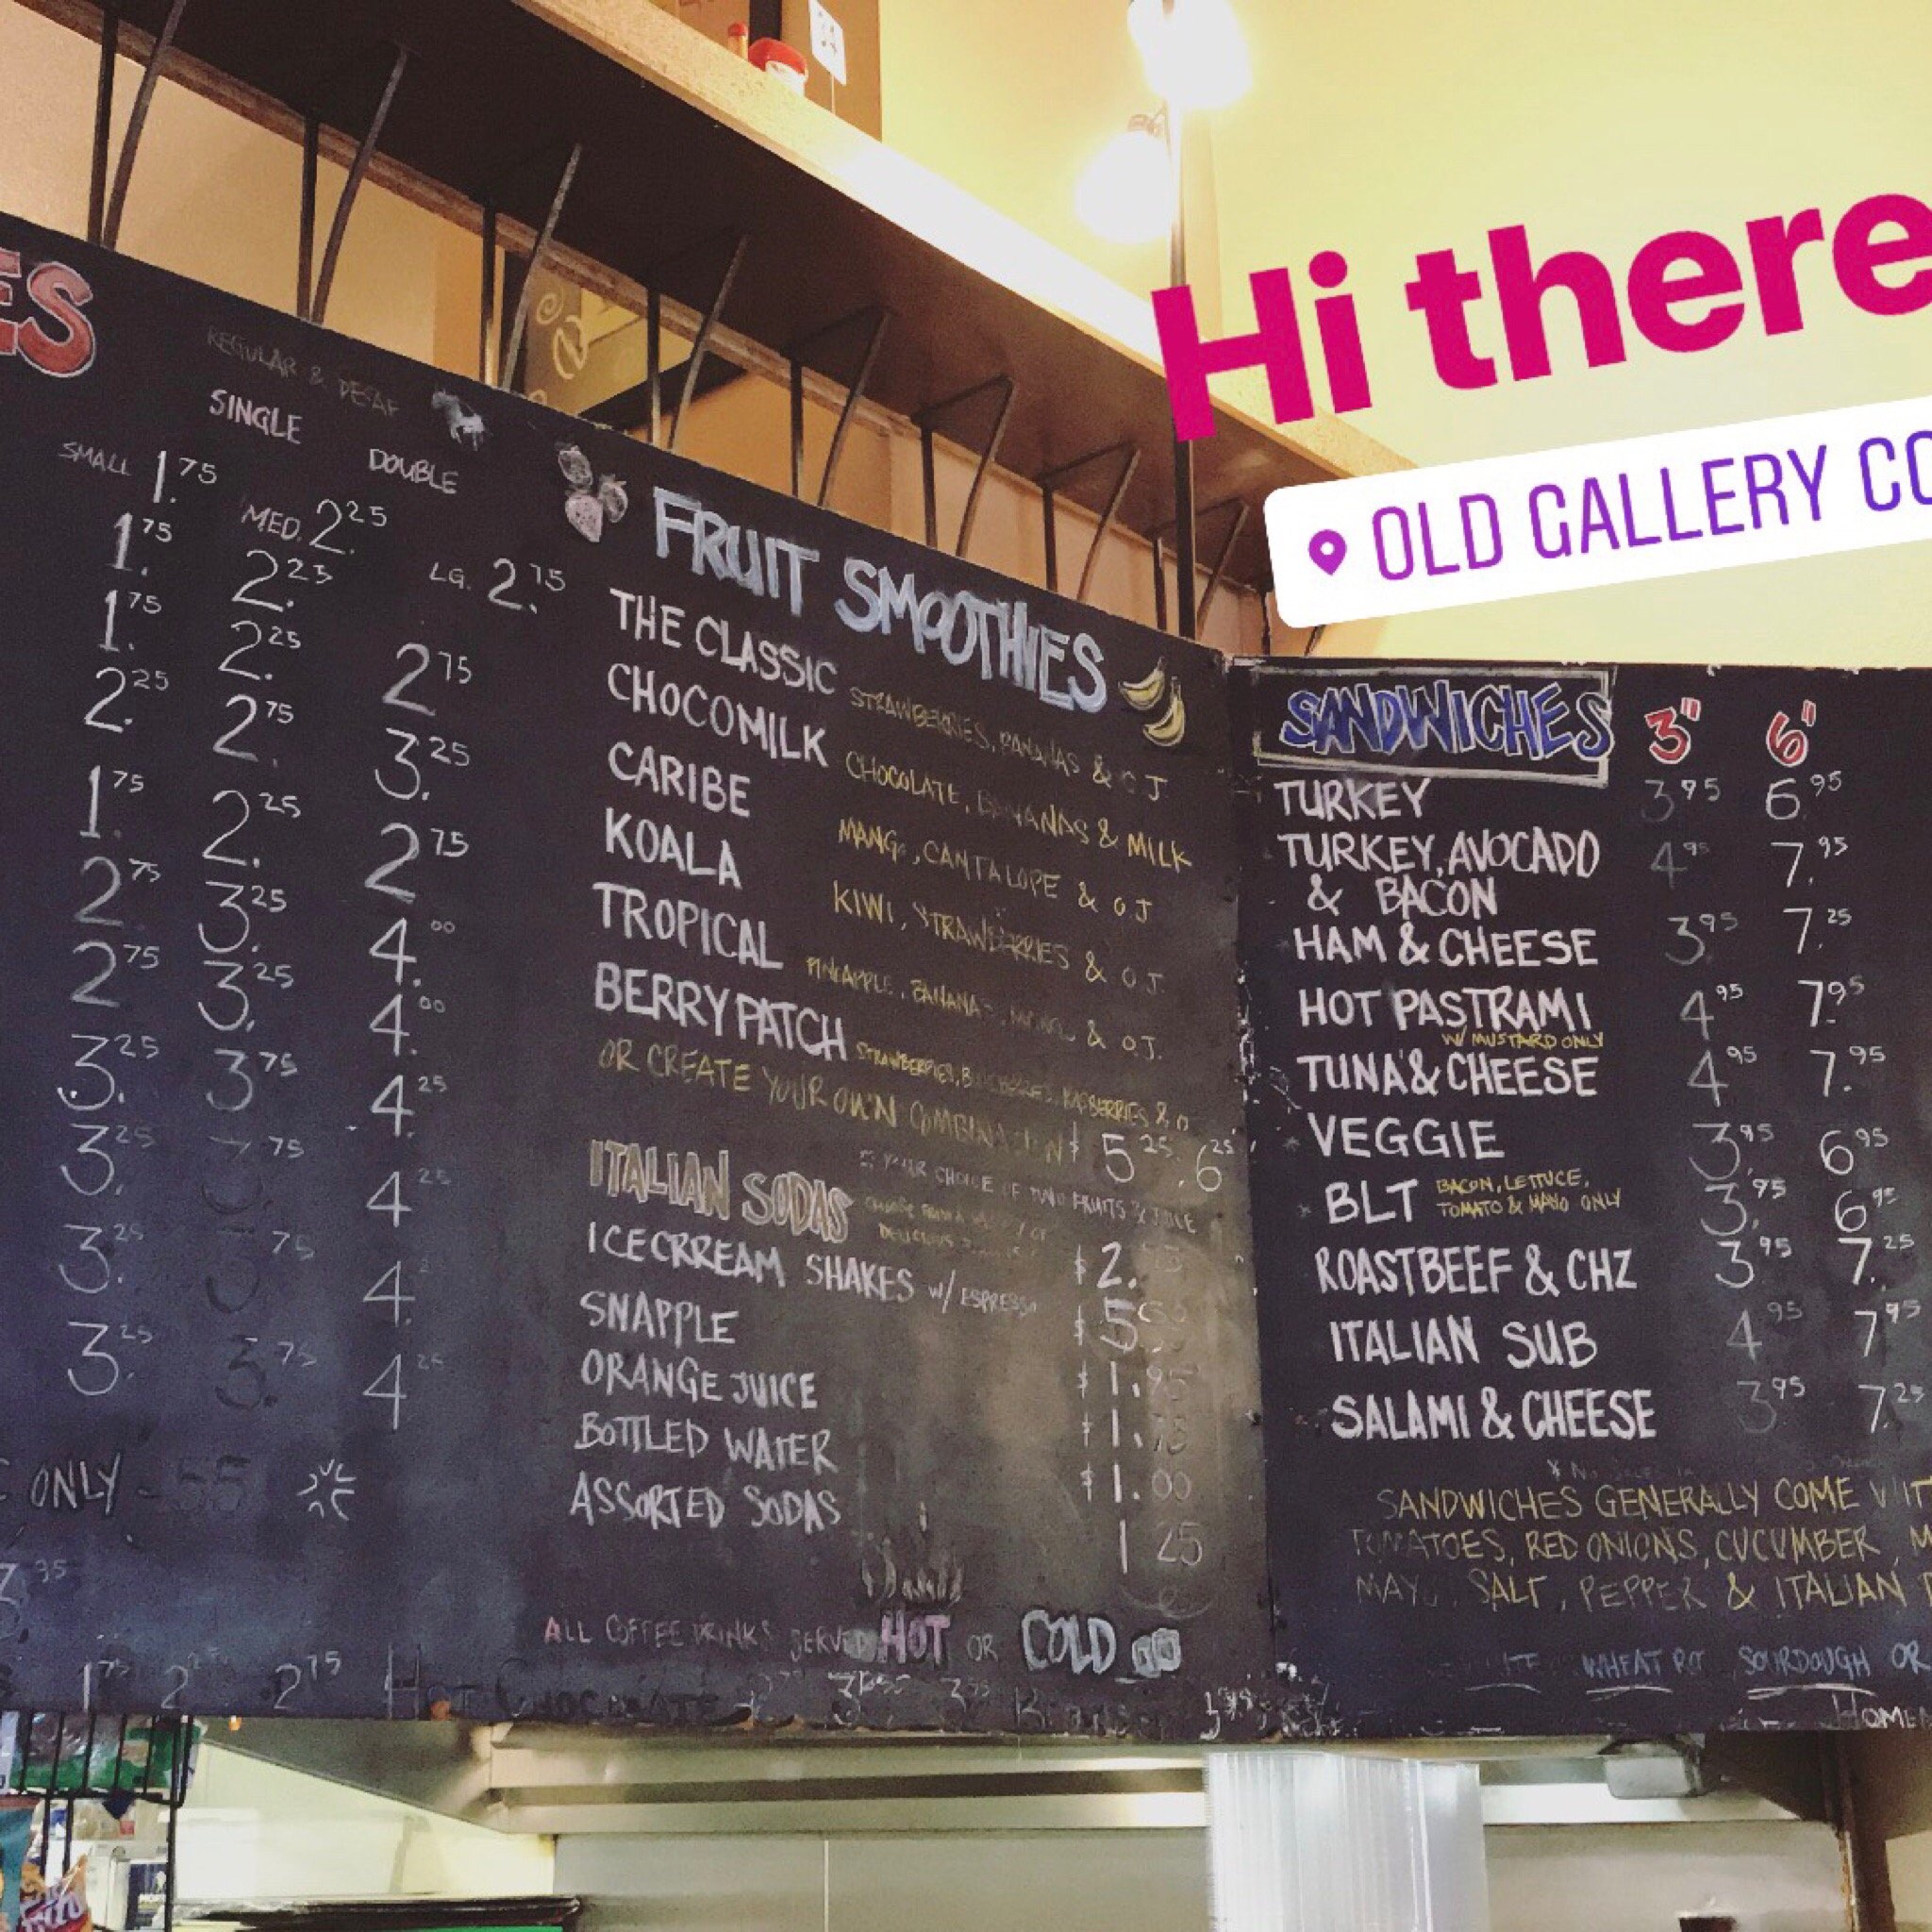 Hi there
OLD GALLERY CO
ES
REGULAR & DECAF
SINGLE
DOUBLE
SMALL 1.75 MED. 2.25 LG. 2.75
1.75 2.25
1.75 2.25 2.75
2.25 2.75 3.25
1.75 2.25 2.75
2.75 3.25 4.00
2.75 3.25 4.00
3.25 3.75 4.25
3.25 75 4.25
3.25 75 4.
3.25 3.75 4.25
ONLY
FRUIT SMOOTHIES
THE CLASSIC STRAWBERRIES, BANANAS & OJ
CHOCOMILK CHOCOLATE, BANANAS & MILK
CARIBE MANGO, CANTALOPE & OJ
KOALA KIWI, STRAWBERRIES & OJ
TROPICAL PINEAPPLE, BANANA & OJ.
BERRY PATCH STRAWBERRIES, RASBERRIES &
OR CREATE YOUR OWN COMBINATION $ 5.25 6.25
YOUR CHOICE OF TWO FRUITS & JUICE
ITALIAN SODAS $2.
ICECRREAM SHAKES W/ ESPRESSO $5
SNAPPLE $1.95
ORANGE JUICE $1.
BOTTLED WATER $1.00
ASSORTED SODAS 1 25
ALL COFFEE DRINKS SERVED HOT OR COLD
1.75 2.25 2.75 HOT CHOCOLATE
SANDWICHES 3" 6"
TURKEY 3.95 6.95
TURKEY, AVOCADO 4.95 7.95
& BACON
HAM & CHEESE 3.95 7.25
HOT PASTRAMI 4.95 7.95
W/ MUSTARD ONLY
TUNA & CHEESE 4.95 7.95
VEGGIE 3.95 6.95
BLT BACON, LETTUCE, 3.95 6.95
TOMATO & MAYO ONLY
ROASTBEEF & CHZ 3.95 7.25
ITALIAN SUB 4.95 7.95
SALAMI & CHEESE 3.95 7.25
SANDWICHES GENERALLY COME WIT
TOMATOES, RED ONIONS, CUCUMBER,
MAYO, SALT, PEPPER & ITALIAN
WHEAT SOURDOUGH OR